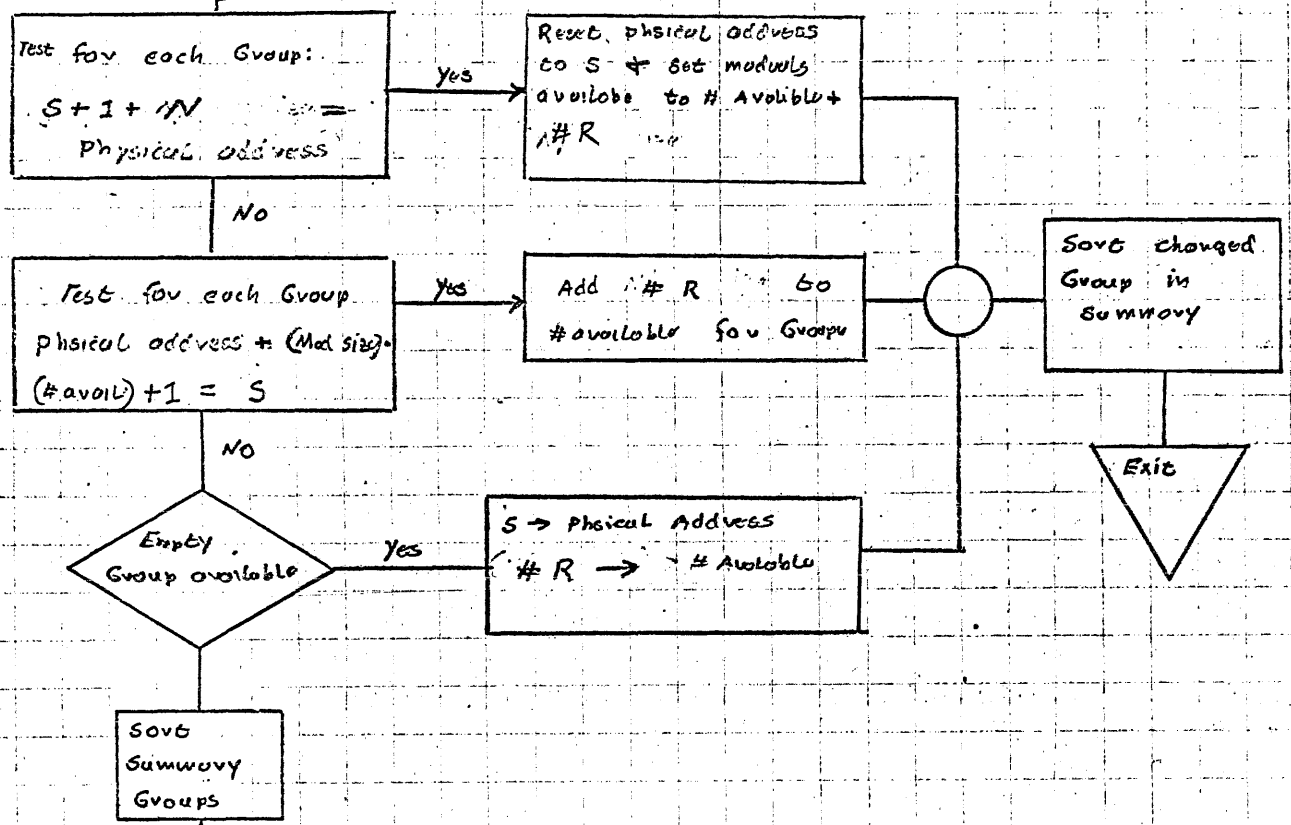 Test for each Group:
S + 1 + N =
Physical address
Yes
Reset physical address
to S + set moduuls
availabe to # Avalible +
# R
NO
Test for each Group
phsical address + (Mod size).
(# avail) + 1 = S
Yes
Add # R to
# available for Groupe
Sort changed
Group in
Summory
Exit
NO
Empty
Group available
Yes
S → Phsical Address
# R → # Avalable
Sort
Summory
Groups